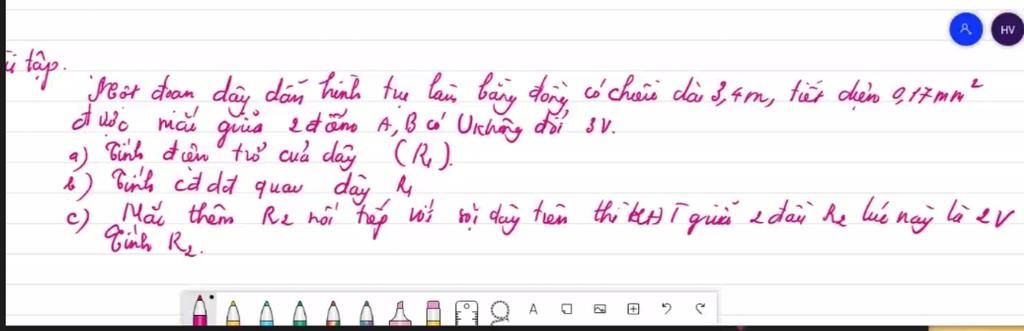 HV
tập.
Một đoạn dây dẫn hình trụ làm bằng đồng có chiều dài 3,4m, tiết diện 0,17mm²
được mắc giữa 2 điểm A, B có U không đổi 3V.
a) Tính điện trở của dây (R₁).
b) Tính cđdđ qua dây R₁
c) Mắc thêm R₂ nối tiếp với sợi dây trên thì HĐT giữa 2 đầu R₂ lúc này là 2V
Tính R₂.
A